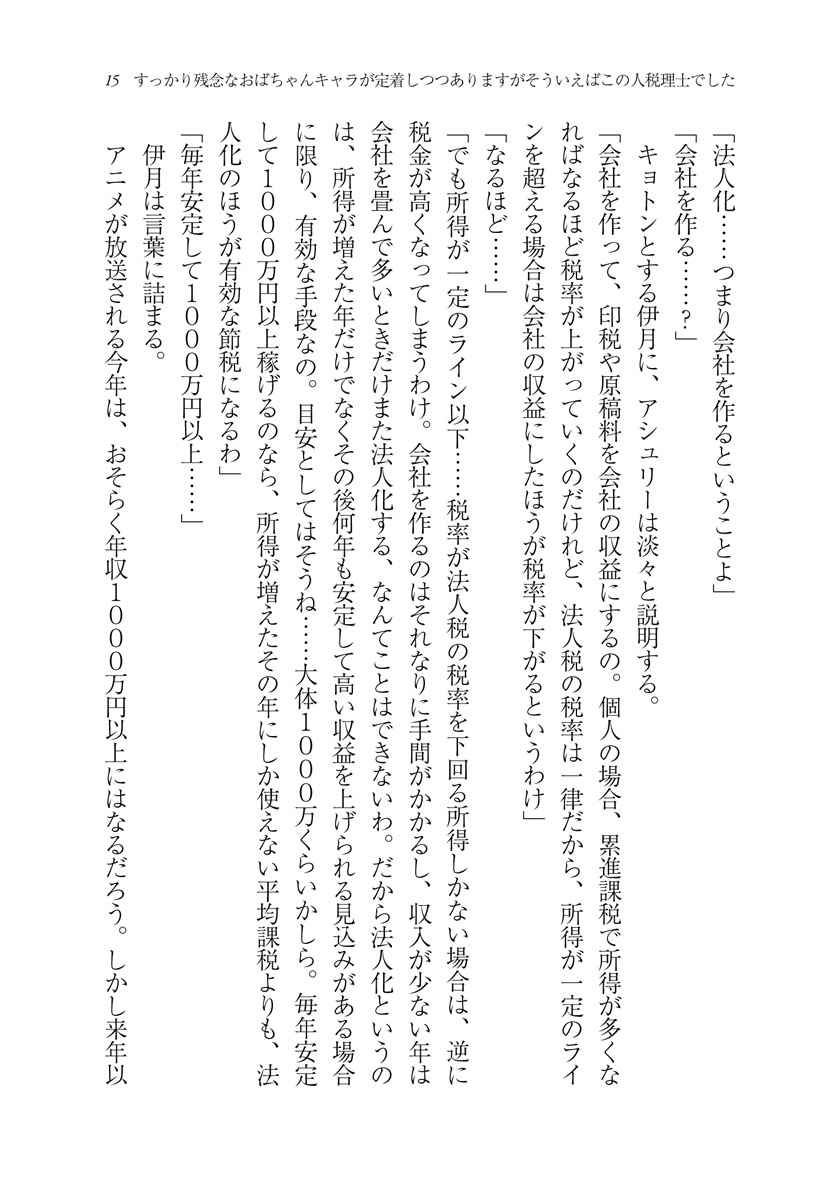 15 すっかり残念なおばちゃんキャラが定着しつつありますがそういえばこの人税理士でした
「法人化……つまり会社を作るということよ」
「会社を作る……？」
キョトンとする伊月に、アシュリーは淡々と説明する。
「会社を作って、印税や原稿料を会社の収益にするの。個人の場合、累進課税で所得が多くな
ればなるほど税率が上がっていくのだけれど、法人税の税率は一律だから、所得が一定のライ
ンを超える場合は会社の収益にしたほうが税率が下がるというわけ」
「なるほど……」
「でも所得が一定のライン以下……税率が法人税の税率を下回る所得しかない場合は、逆に
税金が高くなってしまうわけ。会社を作るのはそれなりに手間がかかるし、収入が少ない年は
会社を畳んで多いときだけまた法人化する、なんてことはできないわ。だから法人化というの
は、所得が増えた年だけでなくその後何年も安定して高い収益を上げられる見込みがある場合
に限り、有効な手段なの。目安としてはそうね……大体１０００万くらいかしら。毎年安定
して１０００万円以上稼げるのなら、所得が増えたその年にしか使えない平均課税よりも、法
人化のほうが有効な節税になるわ」
「毎年安定して１０００万円以上……」
伊月は言葉に詰まる。
アニメが放送される今年は、おそらく年収１０００万円以上にはなるだろう。しかし来年以